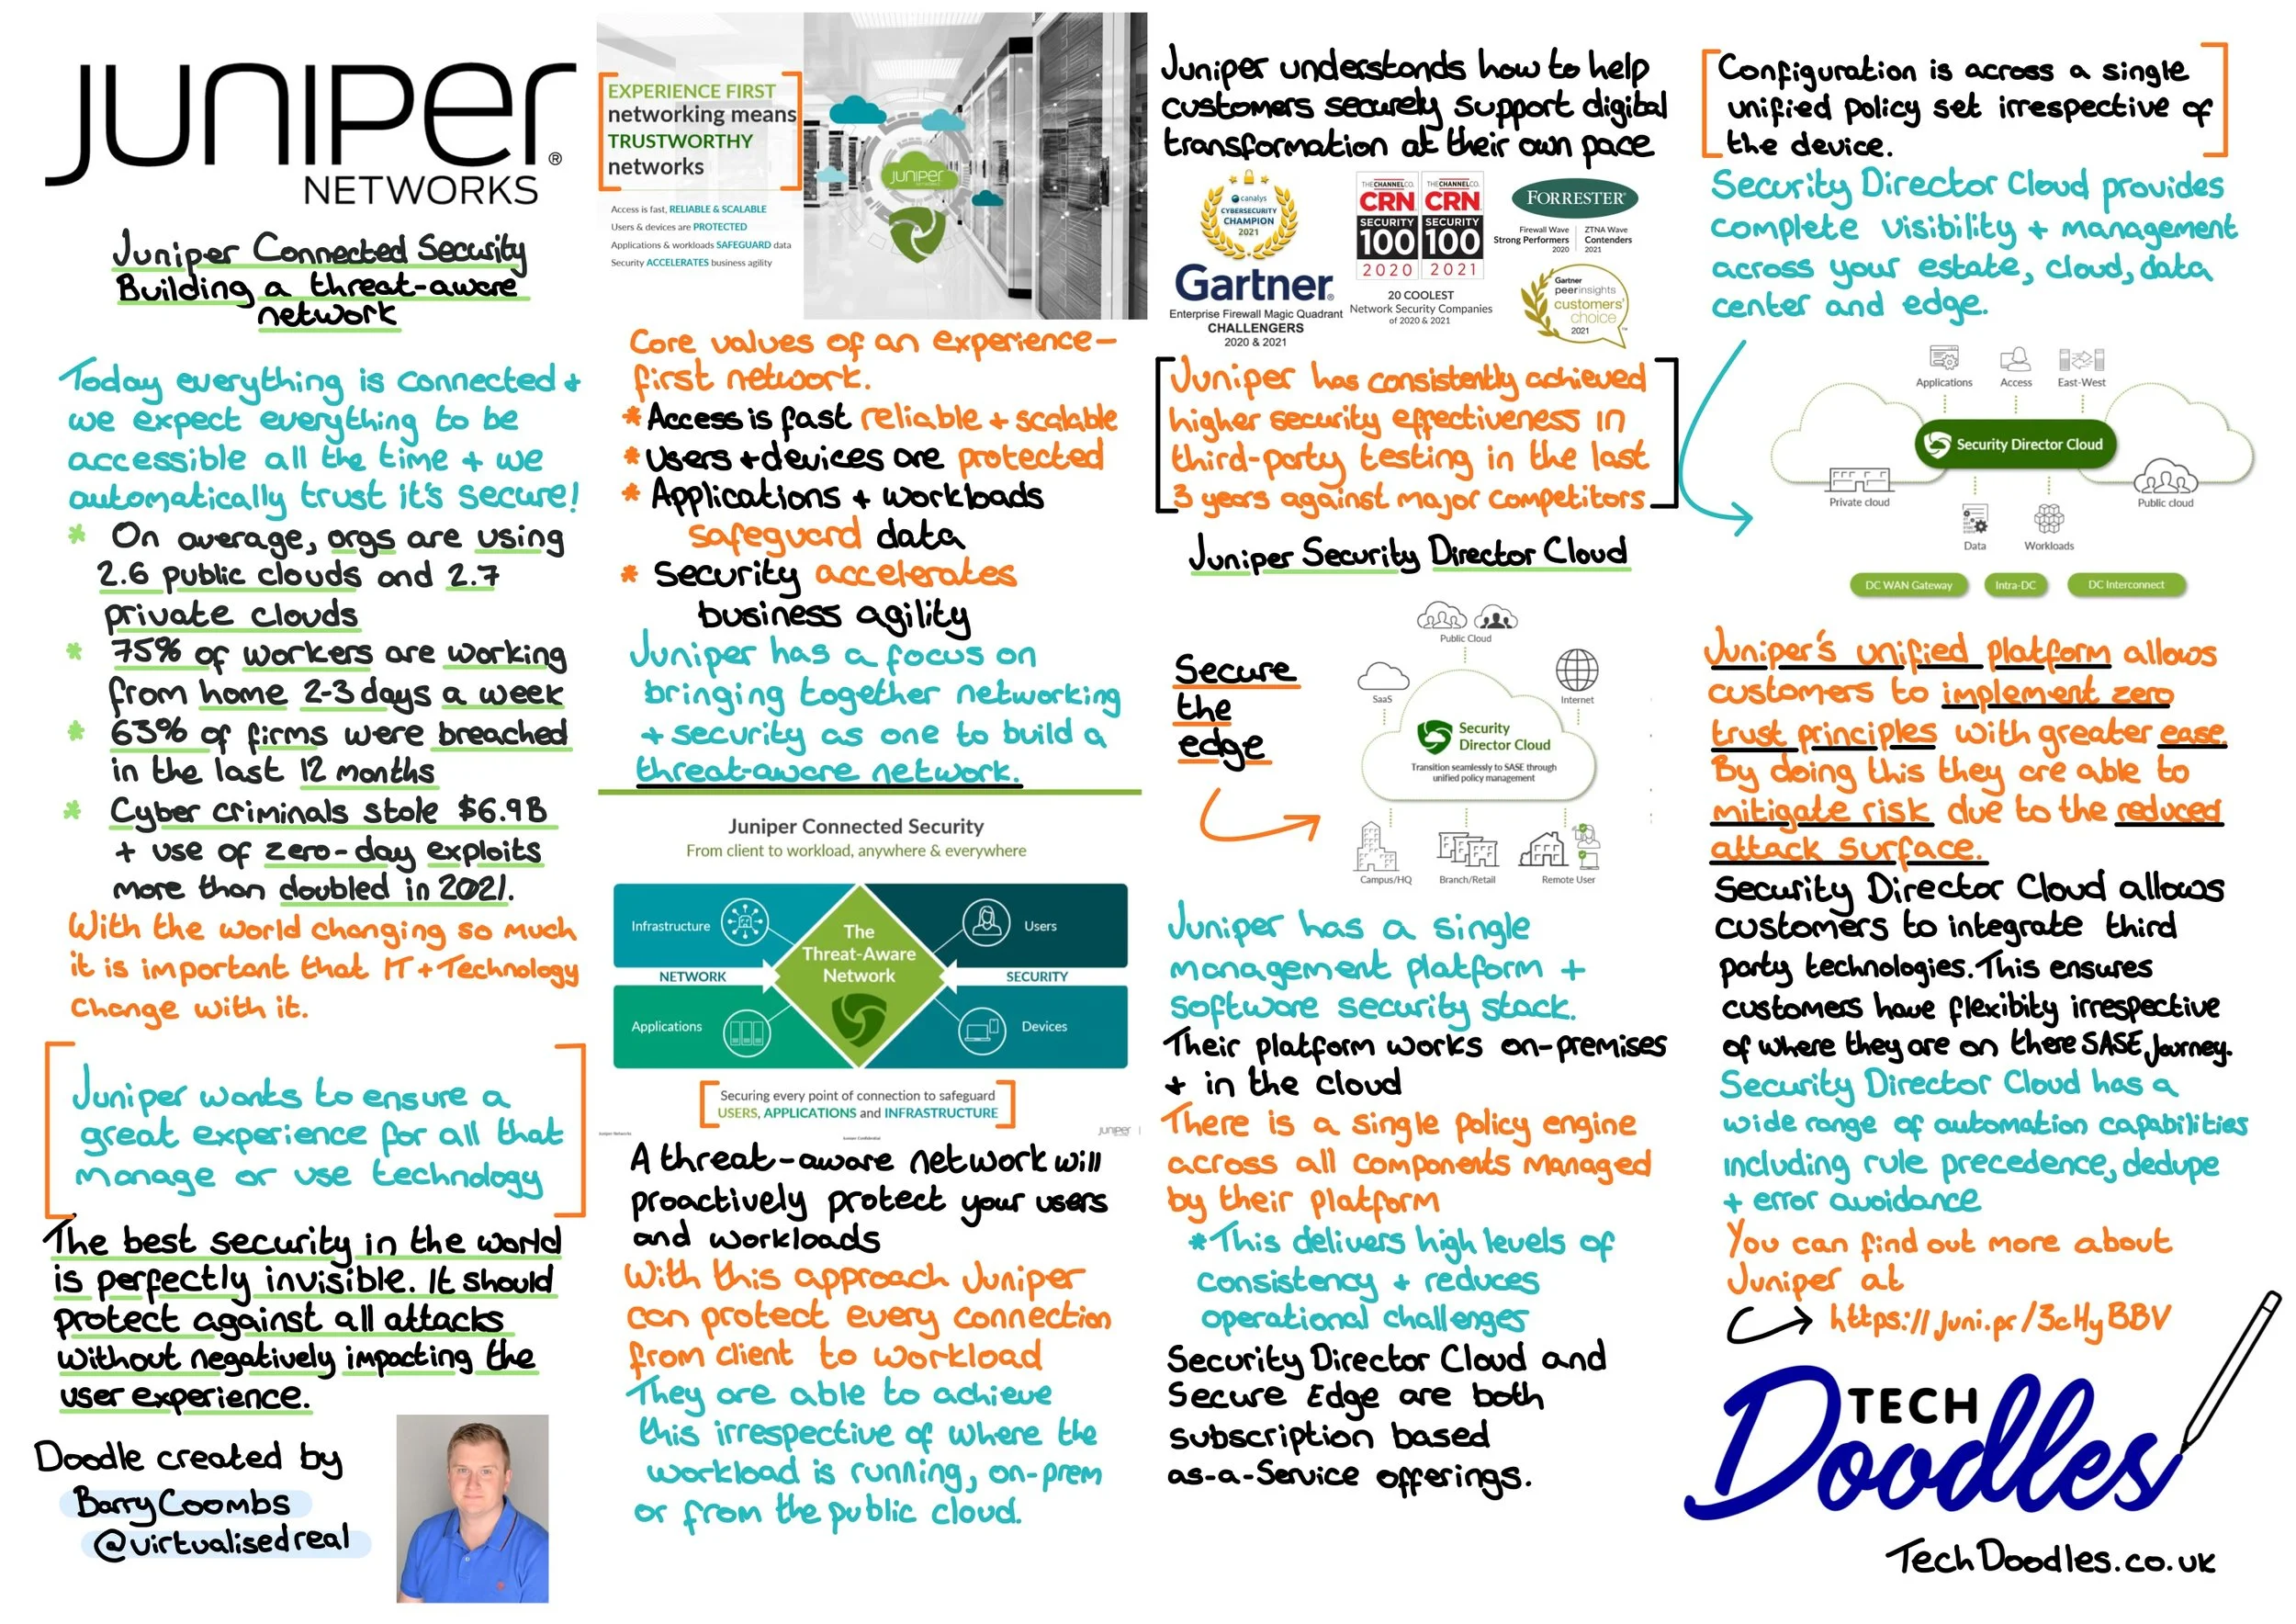 JUNIPER®
NETWORKS
Juniper Connected Security
Building a threat-aware
network
Today everything is connected +
we expect everything to be
accessible all the time + we
automatically trust it's secure!
* On average, orgs are using
2.6 public clouds and 2.7
private clouds
* 75% of workers are working
from home 2-3 days a week
* 63% of firms were breached
in the last 12 months
* Cyber criminals stole $6.9B
+ use of zero-day exploits
more than doubled in 2021.
With the world changing so much
it is important that IT + Technology
Change with it.
Juniper wants to ensure a
great experience for all that
manage or use technology
The best security in the world
is perfectly invisible. It should
protect against all attacks
without negatively impacting the
user experience.
Doodle created by
Barry Coombs
@virtualisedreal
EXPERIENCE FIRST
networking means
TRUSTWORTHY
networks
Access is fast, RELIABLE & SCALABLE
Users & devices are PROTECTED
Applications & workloads SAFEGUARD data
Security ACCELERATES business agility
JUNIPER
Core values of an experience-
first network.
* Access is fast reliable + scalable
* Users + devices are protected
* Applications + workloads
safeguard data
* Security accelerates
business agility
Juniper has a focus on
bringing together networking
+ security as one to build a
threat-aware network.
Juniper Connected Security
From client to workload, anywhere & everywhere
Infrastructure
Users
The
Threat-Aware
Network
NETWORK
SECURITY
Applications
Devices
Securing every point of connection to safeguard
USERS, APPLICATIONS and INFRASTRUCTURE
Juniper Networks
Juniper Confidential
JUNIPER
A threat-aware network will
proactively protect your users
and workloads
With this approach Juniper
can protect every connection
from client to workload
They are able to achieve
this irrespective of where the
workload is running, on-prem
or from the public cloud.
Juniper understands how to help
customers securely support digital
transformation at their own pace
canalys
CYBERSECURITY
CHAMPION
2021
THE CHANNEL CO.
CRN
SECURITY
100
2020
THE CHANNEL CO.
CRN
SECURITY
100
2021
20 COOLEST
Network Security Companies
of 2020 & 2021
FORRESTER®
Firewall Wave
Strong Performers
2020
ZTNA Wave
Contenders
2021
Gartner®
Enterprise Firewall Magic Quadrant
CHALLENGERS
2020 & 2021
Gartner
peerinsights
customers'
choice
2021
Juniper has consistently achieved
higher security effectiveness in
third-party testing in the last
3 years against major competitors
Juniper Security Director Cloud
Secure
the
edge
Public Cloud
SaaS
Internet
Security
Director Cloud
Transition seamlessly to SASE through
unified policy management
Campus/HQ
Branch/Retail
Remote User
Juniper has a single
management platform +
software security stack.
Their platform works on-premises
+ in the cloud
There is a single policy engine
across all components managed
by their platform
* This delivers high levels of
consistency + reduces
operational challenges
Security Director Cloud and
Secure Edge are both
subscription based
as-a-Service offerings.
Configuration is across a single
unified policy set irrespective of
the device.
Security Director Cloud provides
complete visibility + management
across your estate, cloud, data
center and edge.
Applications
Access
East-West
Security Director Cloud
Private cloud
Public cloud
Data
Workloads
DC WAN Gateway
Intra-DC
DC Interconnect
Juniper's unified platform allows
customers to implement zero
trust principles with greater ease.
By doing this they are able to
mitigate risk due to the reduced
attack surface.
Security Director Cloud allows
customers to integrate third
party technologies. This ensures
customers have flexibity irrespective
of where they are on there SASE Journey.
Security Director Cloud has a
wide range of automation capabilities
including rule precedence, dedupe
+ error avoidance
You can find out more about
Juniper at
https://juni.pr/3cHyBBV
TECH
Doodles
TechDoodles.co.uk